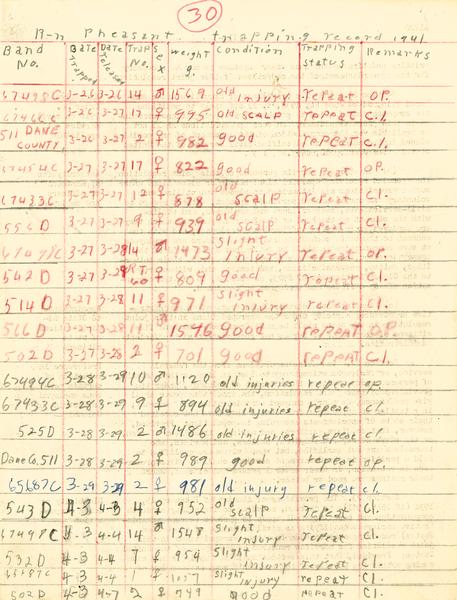 30
R-n Pheasant trapping record 1941
Band No. Date Trapped Date Released Trap No. Sex weight g. condition Trapping status Remarks
67498C 3-26 3-26 14 ♂ 1569 old injury repeat op.
3-26 3-27 17 ♀ 995 old SCALP repeat c.l.
511 DANE COUNTY 3-26 3-27 2 ♀ 982 good repeat c.l.
67454C 3-27 3-27 17 ♀ 822 good repeat op.
67433C 3-27 3-27 12 ♀ 878 old scalp repeat cl.
556D 3-27 3-27 9 ♀ 939 old SCALP repeat cl.
67498C 3-27 3-28 14 ♂ 1473 slight injury repeat op.
542D 3-27 3-28 RT. 60 ♀ 809 good repeat cl.
514D 3-27 3-28 11 ♀ 971 slight injury repeat cl.
566D 3-28 3-28 11 ♂ 1596 good repeat O.P.
502D 3-27 3-28 2 ♀ 701 Good repeat c.l.
67494C 3-28 3-29 10 ♂ 1120 old injuries repeat op.
67433C 3-28 3-29 9 ♀ 894 old injuries repeat cl.
525D 3-28 3-29 2 ♂ 1486 old injuries repeat cl.
Dane Co. 511 3-28 3-29 2 ♀ 989 good repeat op.
65687C 3-29 3-29 2 ♀ 981 old injury repeat cl.
543D 4-3 4-3 4 ♀ 952 old scalp repeat cl.
67498C 4-3 4-4 14 ♂ 1548 slight injury repeat cl.
532D 4-3 4-4 7 ♀ 954 slight injury repeat cl.
4-3 4-4 1 ♀ slight injury repeat cl.
502D 4-3 4-7 2 ♀ 749 good repeat cl.